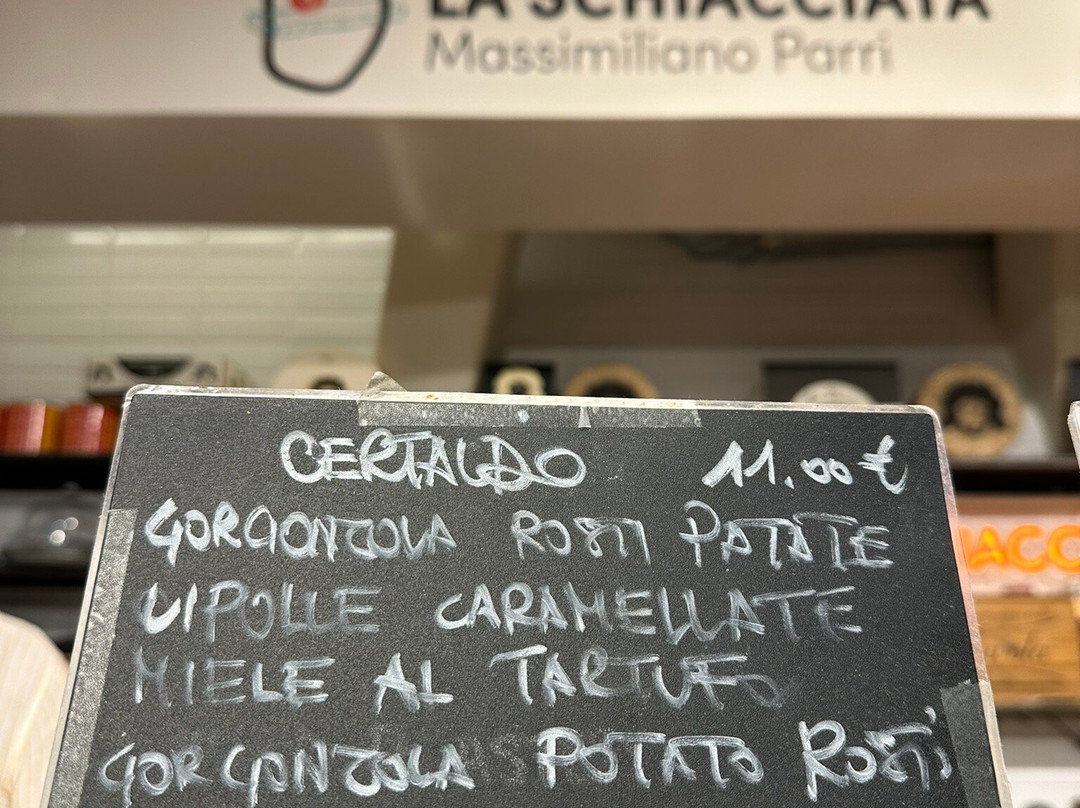 LA SCHIACCIATA
Massimiliano Parri
CERTALDO 11.00 €
GORGONZOLA ROSTI PATATE
CIPOLLE CARAMELLATE
MIELE AL TARTUFO
GORGONZOLA POTATO ROSTI